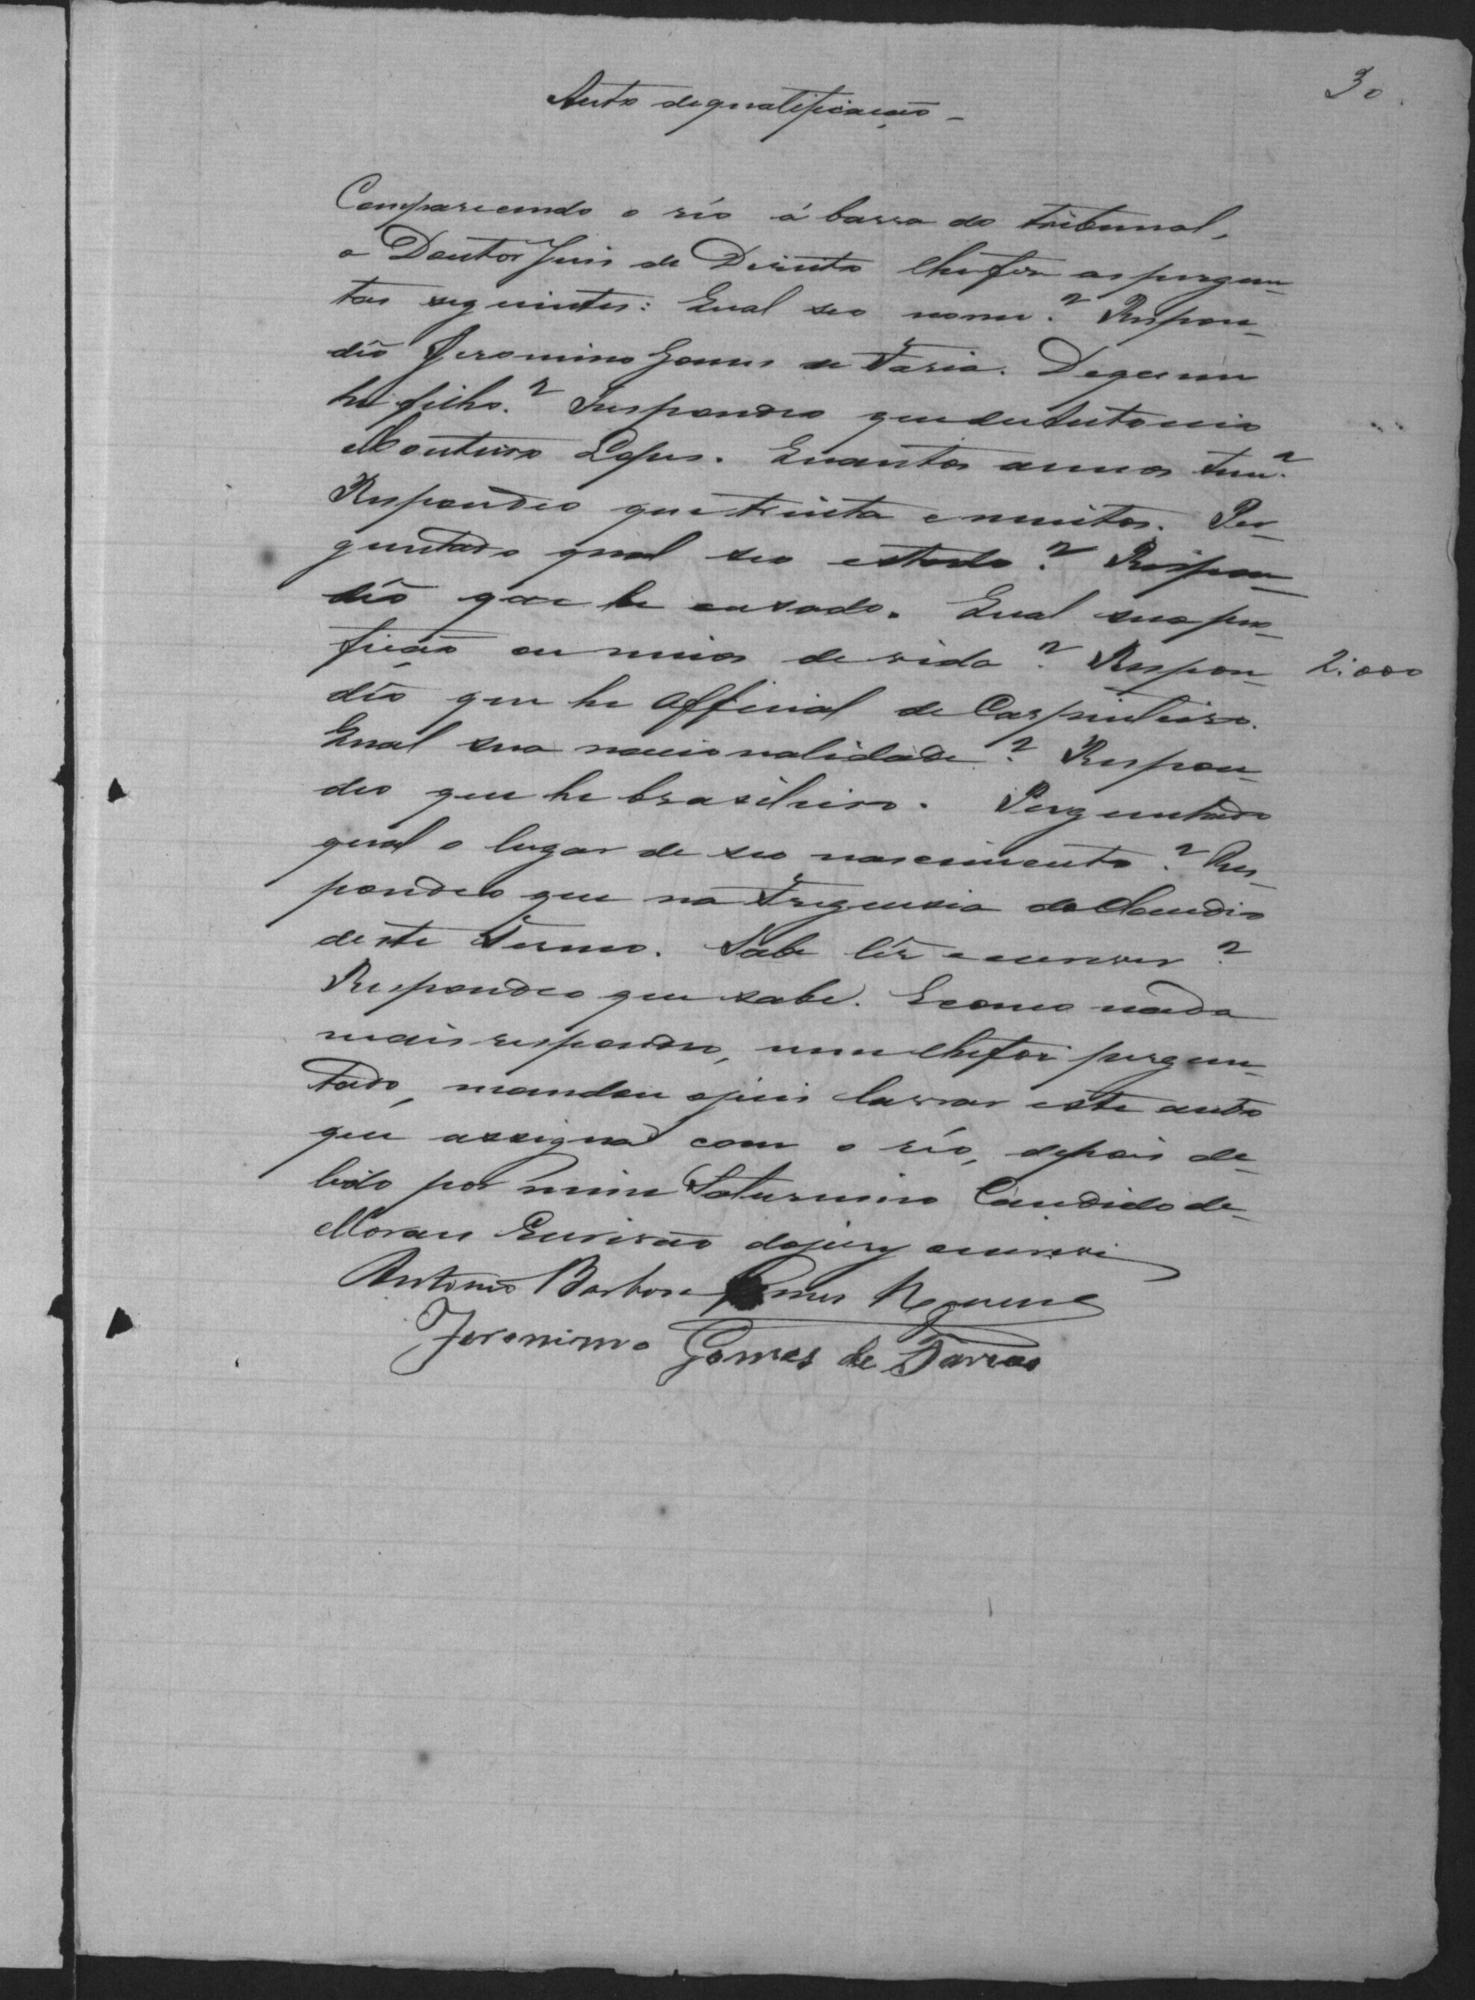 30
Auto de qualificação –
Comparecendo o réo á barra do tribunal,
o Doutor Juis de Direito lhe fez as pergun-
tas seguintes: Qual seo nome? Respon-
dêo Jeronimo Gomes de Faria. De quem
he filho? Respondeo que de Antonio
Monteiro Lopes. Quantos annos tem?
Respondeo que trinta e muitos. Per-
guntado qual seo estado? Respon-
dêo que he cazado. Qual sua pro-
fição ou meios de vida? Respon-
2:000
dêo que he official de Carpinteiro.
Qual sua nacionalidade? Respon-
deo que he brasileiro. Perguntado
qual o lugar de seo nascimento? Res-
pondeo que na Freguesia do Claudio
deste Termo. Sabe lêr e escrever?
Respondeo que sabe. E como nada
mais respondeo, nem lhe foi pergun-
tado, mandou o juis lavrar este auto
que assigna com o réo, depois de
lido por mim Saturnino Candido de
Moraes Escrivão do jury o escrevi
Antonio Barbosa Gomes
Jeronimo Gomes de Farias